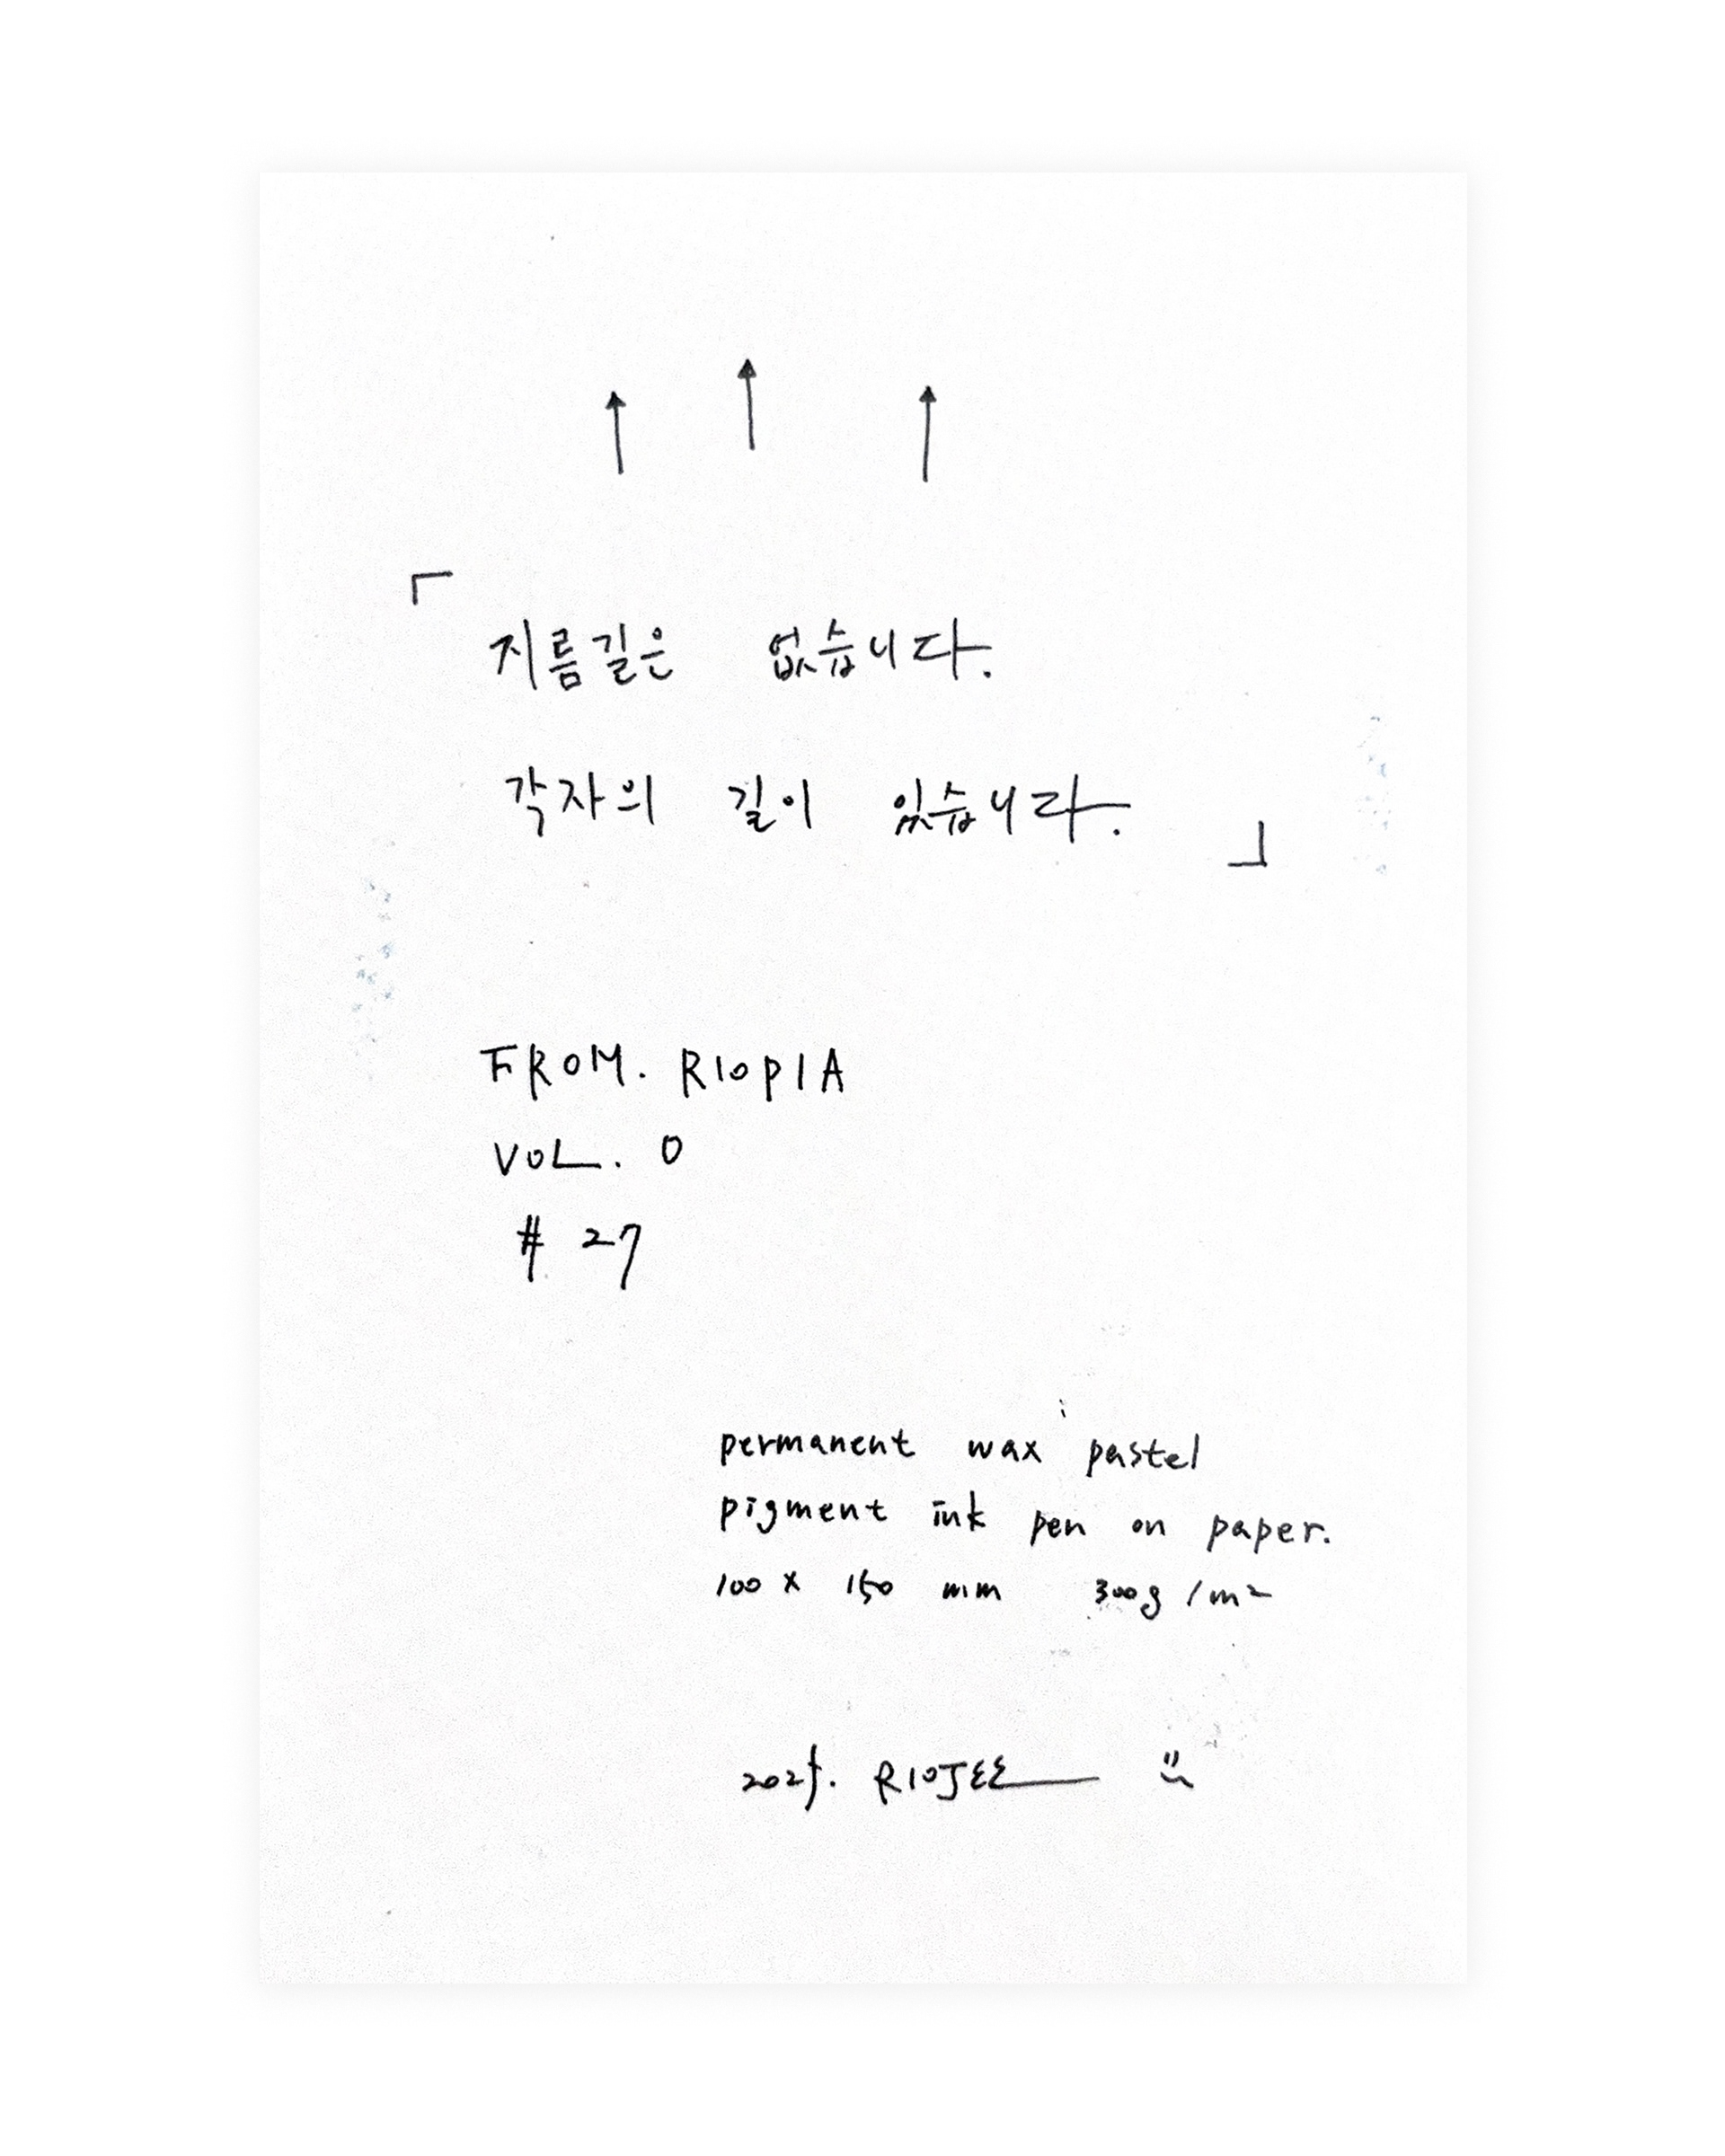 「
지름길은 없습니다.
각자의 길이 있습니다.
」
FROM. RIOPIA
VOL. 0
# 27
permanent wax pastel
pigment ink pen on paper.
100 x 150 mm 300g/m²
2025. RIOJEE